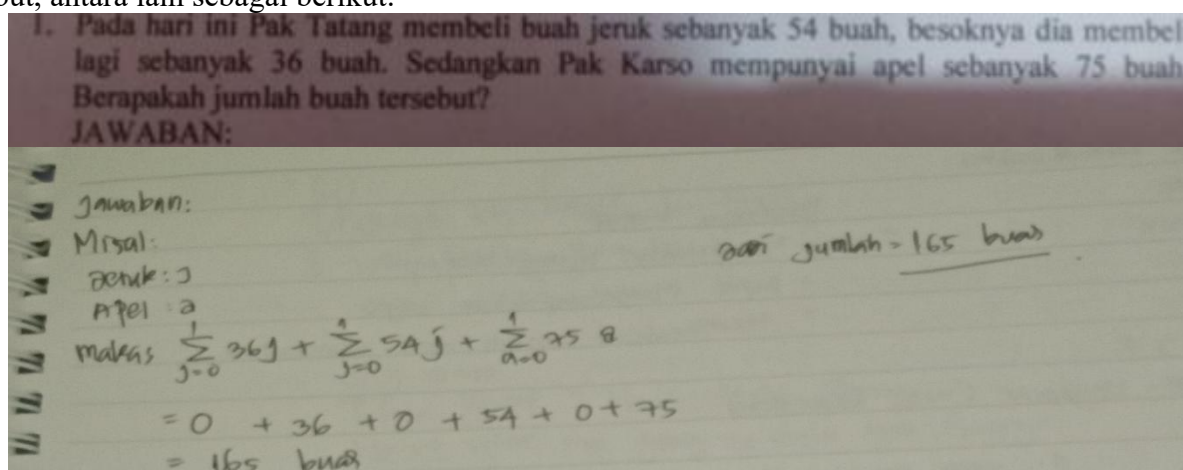 but, antara lain sebagai berikut:
1. Pada hari ini Pak Tatang membeli buah jeruk sebanyak 54 buah, besoknya dia membel
lagi sebanyak 36 buah. Sedangkan Pak Karso mempunyai apel sebanyak 75 buah
Berapakah jumlah buah tersebut?
JAWABAN:
Jawaban:
Misal:
Jeruk : J
Apel : a
jumlah = 165 buah
1 1 1
∑ 36j + ∑ 54j + ∑ 75 a
j=0 j=0 a=0
= 0 + 36 + 0 + 54 + 0 + 75
= 165 buah